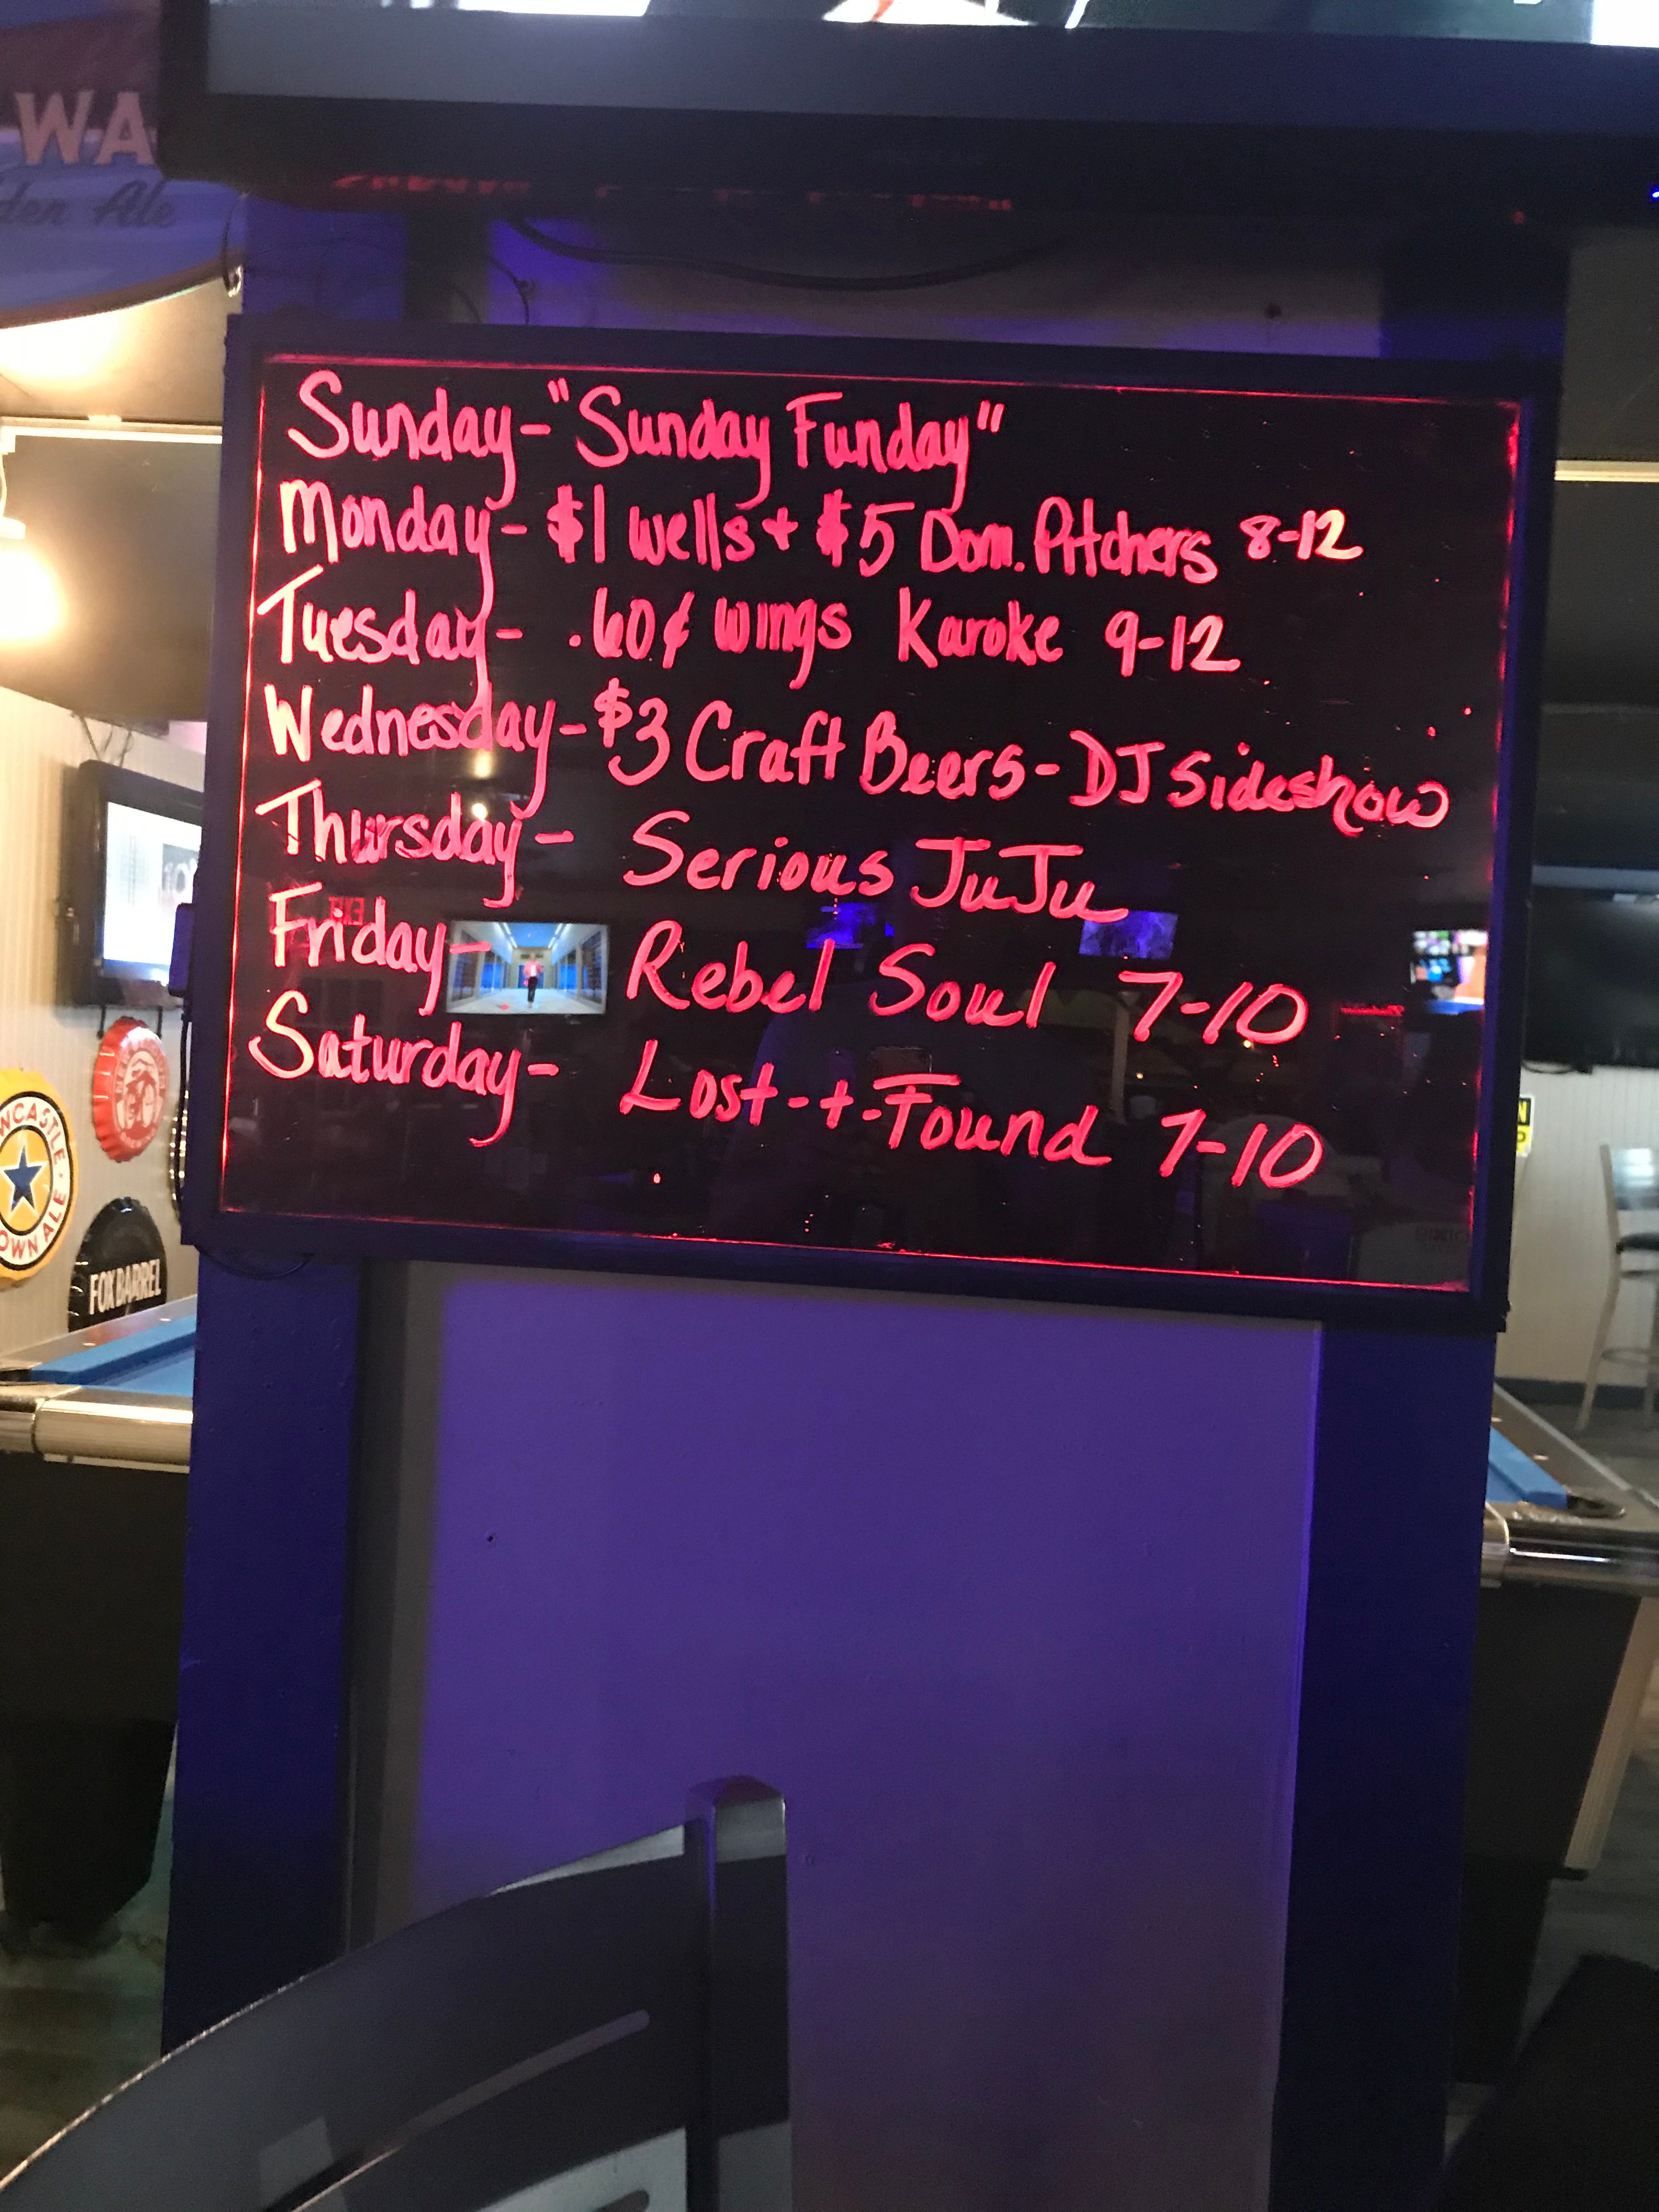 WA
den Ale
Sunday-"Sunday Funday"
Monday- $1 wells + $5 Dom. Pitchers 8-12
Tuesday- .60¢ wings Karoke 9-12
Wednesday-$3 Craft Beers-DJ Sideshow
Thursday- Serious JuJu
Friday- Rebel Soul 7-10
Saturday- Lost-+-Found 7-10
WCASTLE
OWN ALE
FOX BARREL